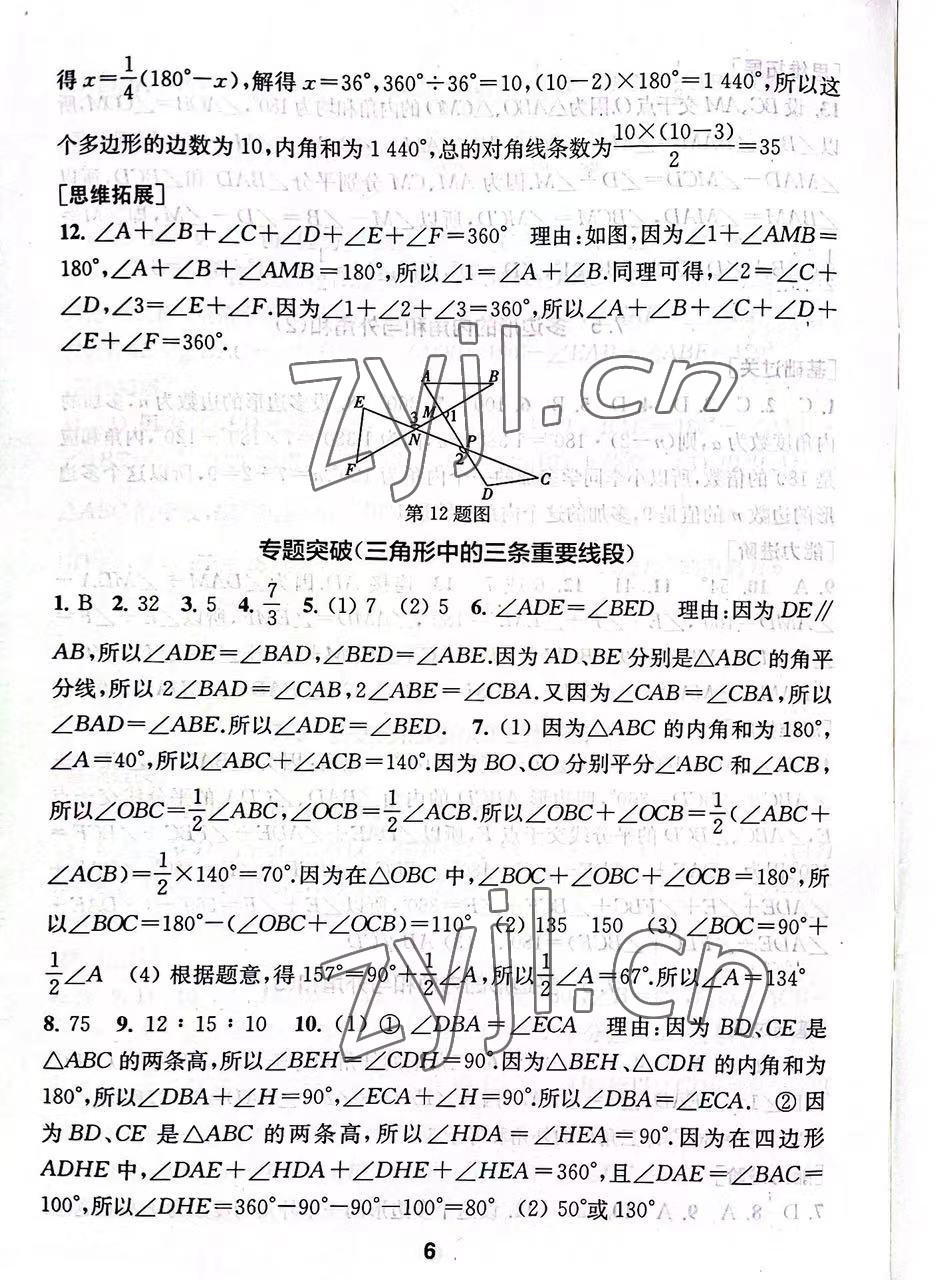 得 x=1/4(180°-x),解得 x=36°,360°÷36°=10,(10-2)×180°=1 440°,所以这
个多边形的边数为 10,内角和为 1 440°,总的对角线条数为10×(10-3)/2=35
[思维拓展]
12. ∠A+∠B+∠C+∠D+∠E+∠F=360° 理由:如图,因为∠1+∠AMB=
180°,∠A+∠B+∠AMB=180°,所以∠1=∠A+∠B.同理可得,∠2=∠C+
∠D,∠3=∠E+∠F.因为∠1+∠2+∠3=360°,所以∠A+∠B+∠C+∠D+
∠E+∠F=360°.
A B
E M 1
3
N P
F 2
C
D
第 12 题图
专题突破(三角形中的三条重要线段)
1. B 2. 32 3. 5 4. 7/3 5. (1) 7 (2) 5 6. ∠ADE=∠BED 理由:因为 DE∥
AB,所以∠ADE=∠BAD,∠BED=∠ABE.因为 AD、BE 分别是△ABC 的角平
分线,所以 2∠BAD=∠CAB,2∠ABE=∠CBA.又因为∠CAB=∠CBA,所以
∠BAD=∠ABE.所以∠ADE=∠BED. 7. (1) 因为△ABC 的内角和为 180°,
∠A=40°,所以∠ABC+∠ACB=140°.因为 BO、CO 分别平分∠ABC 和∠ACB,
所以∠OBC=1/2∠ABC,∠OCB=1/2∠ACB.所以∠OBC+∠OCB=1/2(∠ABC+
∠ACB)=1/2×140°=70°.因为在△OBC 中,∠BOC+∠OBC+∠OCB=180°,所
以∠BOC=180°-(∠OBC+∠OCB)=110° (2) 135 150 (3) ∠BOC=90°+
1/2∠A (4) 根据题意,得 157°=90°+1/2∠A,所以1/2∠A=67°.所以∠A=134°
8. 75 9. 12∶15∶10 10. (1) ① ∠DBA=∠ECA 理由:因为 BD、CE 是
△ABC 的两条高,所以∠BEH=∠CDH=90°.因为△BEH、△CDH 的内角和为
180°,所以∠DBA+∠H=90°,∠ECA+∠H=90°.所以∠DBA=∠ECA. ② 因
为 BD、CE 是△ABC 的两条高,所以∠HDA=∠HEA=90°.因为在四边形
ADHE 中,∠DAE+∠HDA+∠DHE+∠HEA=360°,且∠DAE=∠BAC=
100°,所以∠DHE=360°-90°-90°-100°=80° (2) 50°或 130°
6
zyjl.cn
zyjl.cn